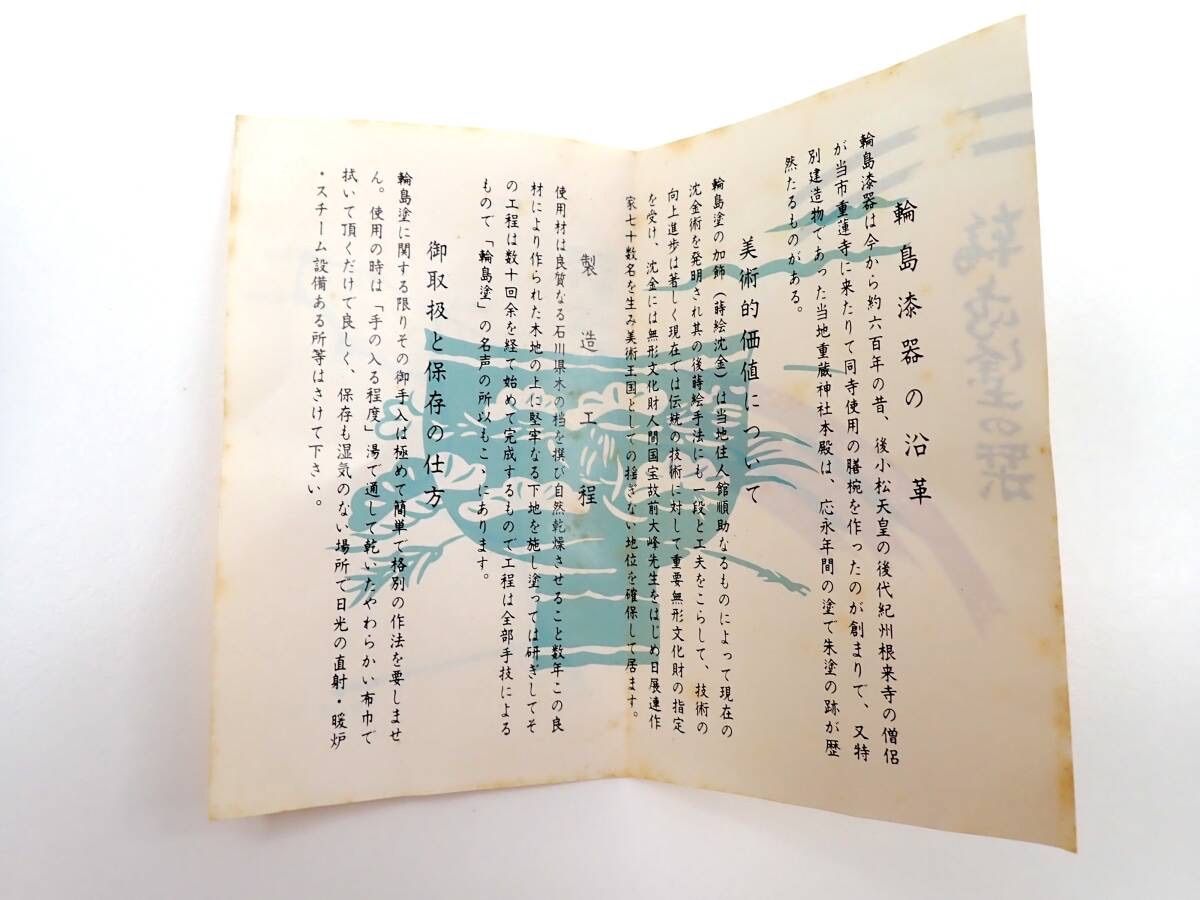 輪島漆器の沿革
輪島漆器は今から約六百年の昔、後小松天皇の後代紀州根来寺の僧侶
が当市重蓮寺に来たりて同寺使用の膳椀を作ったのが創まりで、又特
別建造物であった当地重蔵神社本殿は、応永年間の塗で朱塗の跡が歴
然たるものがある。
美術的価値について
輪島塗の加飾(蒔絵沈金)は当地住人館順助なるものによって現在の
沈金術を発明され其の後蒔絵手法にも一段と工夫をこらして、技術の
向上進歩は著しく現在では伝統の技術に対して重要無形文化財の指定
を受け、沈金には無形文化財人間国宝故前大峰先生をはじめ日展連作
家七十数名を生み美術王国としての揺ぎない地位を確保して居ます。
製造工程
使用材は良質なる石川県木の档を撰び自然乾燥させること数年この良
材により作られた木地の上に堅牢なる下地を施し塗っては研ぎしてそ
の工程は数十回余を経て始めて完成するもので工程は全部手技による
もので「輪島塗」の名声の所以もこゝにあります。
御取扱と保存の仕方
輪島塗に関する限りその御手入は極めて簡単で格別の作法を要しませ
ん。使用の時は「手の入る程度」湯で通して乾いたやわらかい布巾で
拭いて頂くだけで良しく、保存も湿気のない場所で日光の直射・暖炉
・スチーム設備ある所等はさけて下さい。